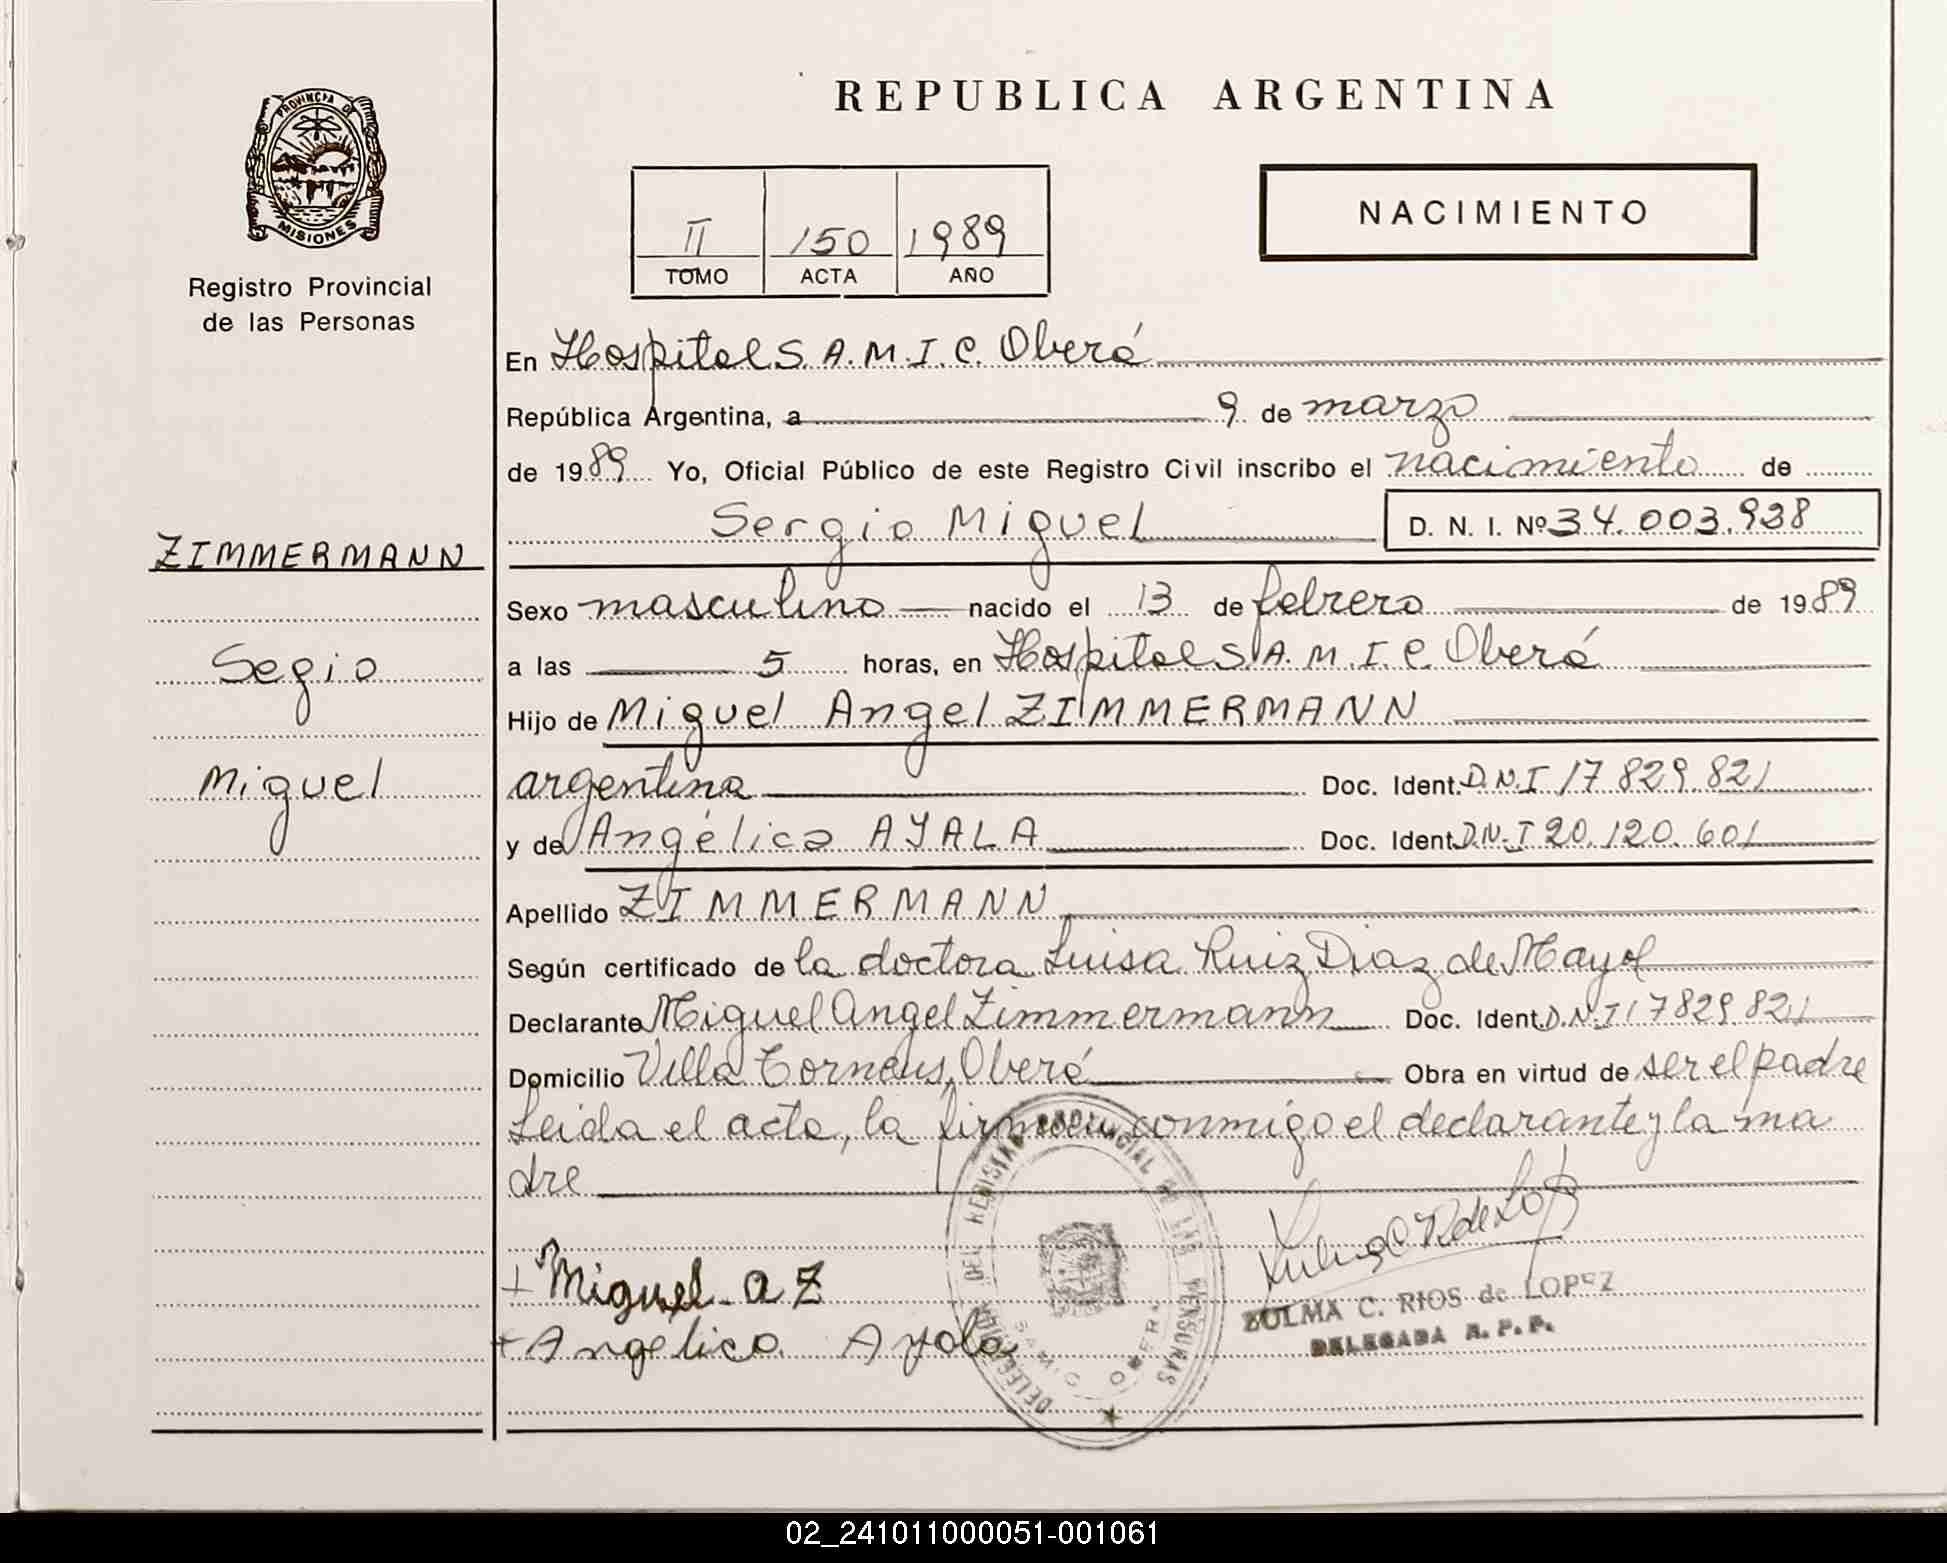 PROVINCIA DE
MISIONES
Registro Provincial
de las Personas
ZIMMERMANN
Segio
Miguel
REPUBLICA ARGENTINA
II 150 1989
TOMO ACTA AÑO
NACIMIENTO
En Hospital S.A.M.I.C. Oberá
República Argentina, a 9 de marzo
de 1989 Yo, Oficial Público de este Registro Civil inscribo el nacimiento de
Sergio Miguel D. N. I. Nº 34.003.938
Sexo masculino nacido el 13 de febrero de 1989
a las 5 horas, en Hospital S.A.M.I.C. Oberá
Hijo de Miguel Angel ZIMMERMANN
argentina Doc. Ident. D.N.I 17.829.821
y de Angélica AYALA Doc. Ident. D.N.I 20.120.601
Apellido ZIMMERMANN
Según certificado de la doctora Luisa Ruiz Diaz de Mayol
Declarante Miguel Angel Zimmermann Doc. Ident. D.N.I 17829821
Domicilio Villa Torneus, Oberá Obra en virtud de ser el padre
Leida el acta, la firman conmigo el declarante y la ma
dre
+ Miguel a Z
+ Angelica Ayala
DEL REGISTRO PROVINCIAL DE LAS PERSONAS
SAMIC OBERA
ZULMA C. RIOS de LOPEZ
DELEGADA R. P. P.
02_241011000051-001061